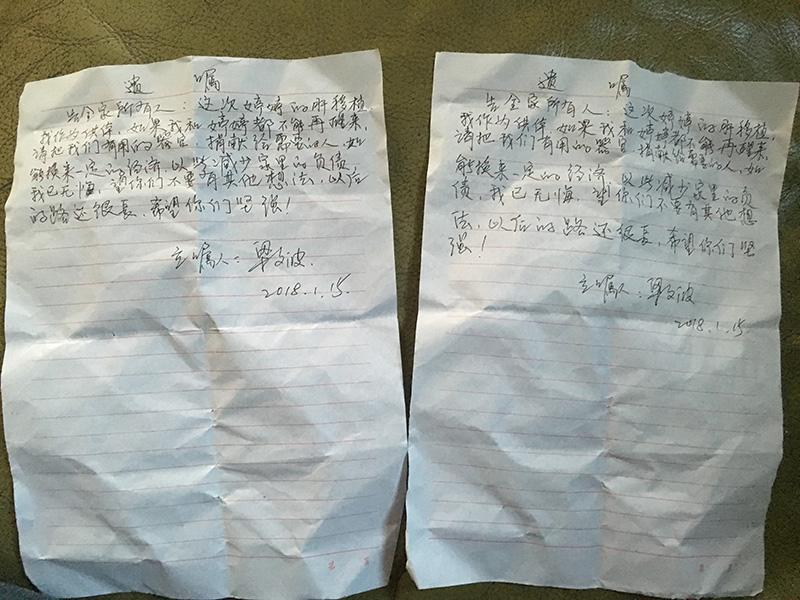 遗 嘱
告全家所有人：这次婷婷的肝移植，
我作为供体，如果我和婷婷都不能再醒来，
请把我们有用的器官，捐献给需要的人，如
能换来一定的经济，以些减少家里的负债，
我已无悔，望你们不要有其他想法，以后
的路还很长，希望你们坚强！
立嘱人：
2018.1.15.
遗 嘱
告全家所有人：这次婷婷的肝移植，
我作为供体，如果我和婷婷都不能再醒来，
请把我们有用的器官，捐献给需要的人，如
能换来一定的经济，以些减少家里的负
债，我已无悔，望你们不要有其他想
法，以后的路还很长，希望你们坚
强！
立嘱人：
2018.1.15.